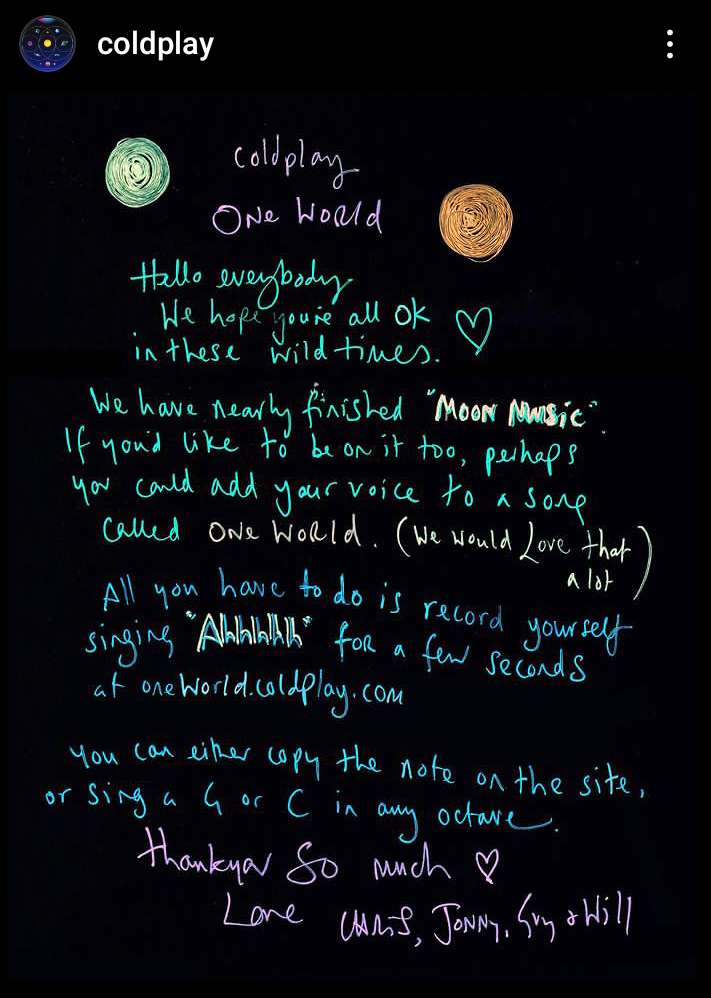 coldplay
coldplay
ONe WORld
Hello everybody
We hope you're all OK
in these wild times.
We have nearly finished "MOON MUSiC".
If you'd like to be on it too, perhaps
you could add your voice to a song
called ONe WORld. (We would Love that
a lot)
All you have to do is record yourself
singing "Ahhhhhh" for a few seconds
at oneworld.coldplay.com
you can either copy the note on the site,
or sing a G or C in any octave.
thankyou so much
Love CHRiS, JONNy, Guy & Will